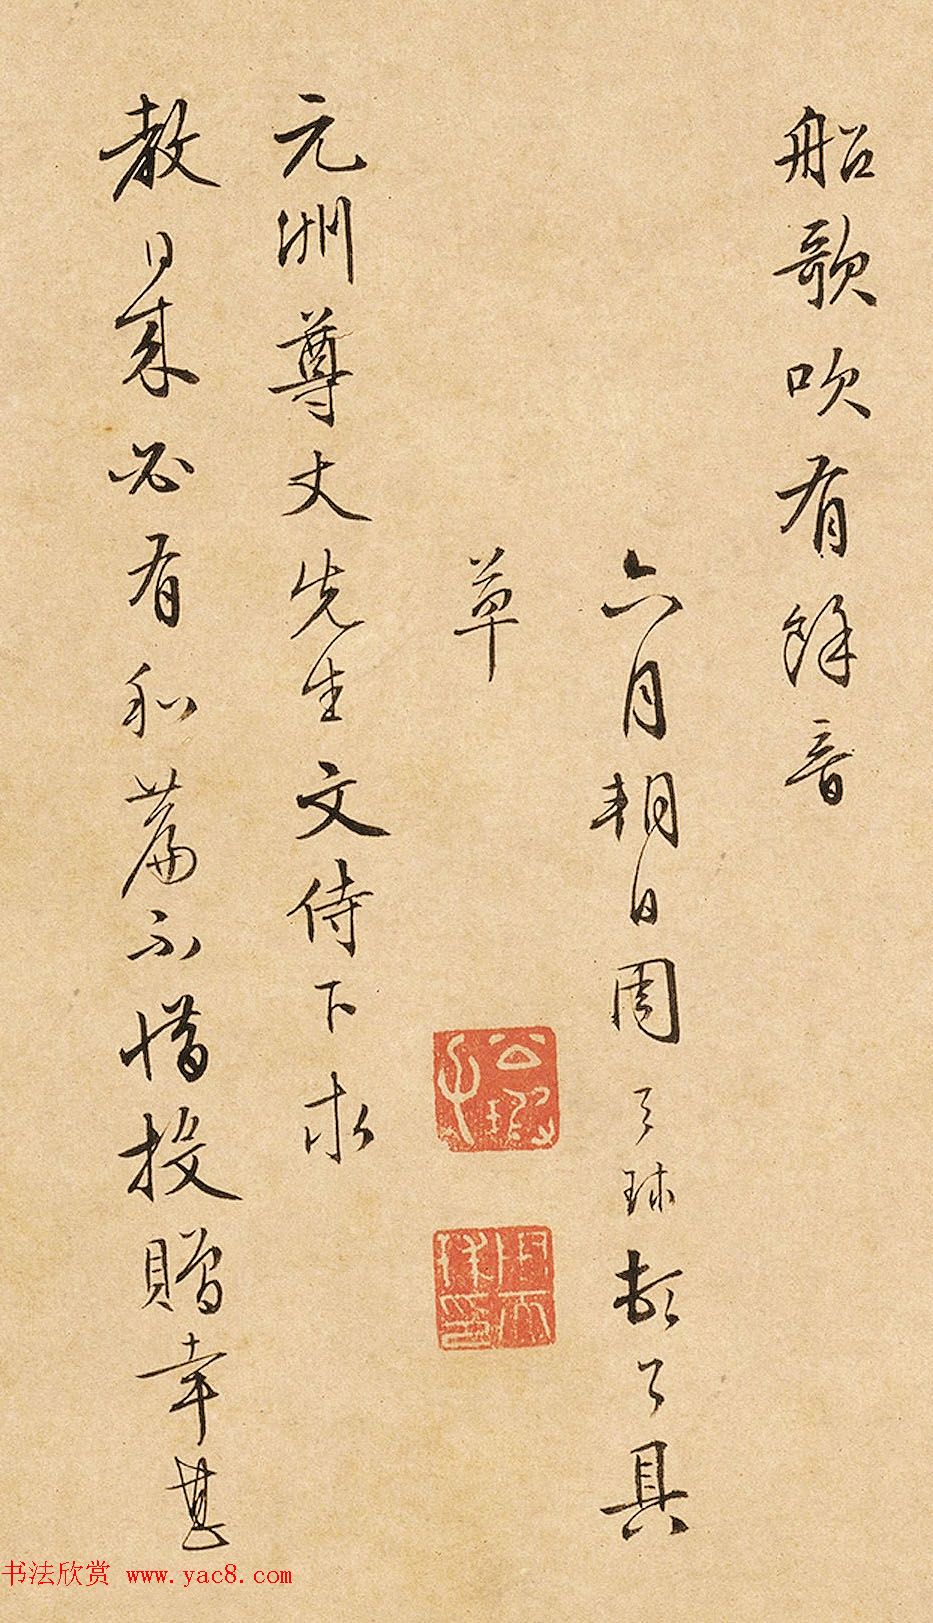 船歌吹有餘音
六月朔日周天球頓首具
草
公瑕
周天球印
元洲尊丈先生文侍下求
教日來必有和篇不惜投贈幸甚
书法欣赏 www.yac8.com